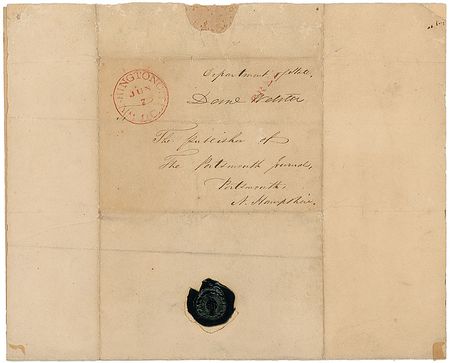 WASHINGTON CITY D.C.
JUN
7
Department of State.
FREE
Danl Webster
The publisher of
The Portsmouth Journal,
Portsmouth,
N. Hampshire.